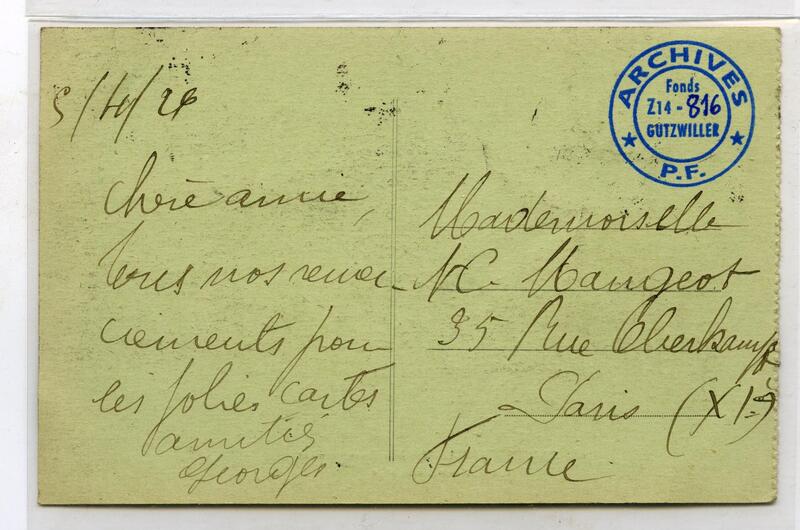 ARCHIVES
Fonds
Z14-816
GUTZWILLER
P.F.
5/4/26
Chère amie,
Tous nos remer
ciements pour
les jolies cartes
amitiés
Georges
Mademoiselle
Mangeot
35 Rue Oberkampf
Paris (XIe)
France